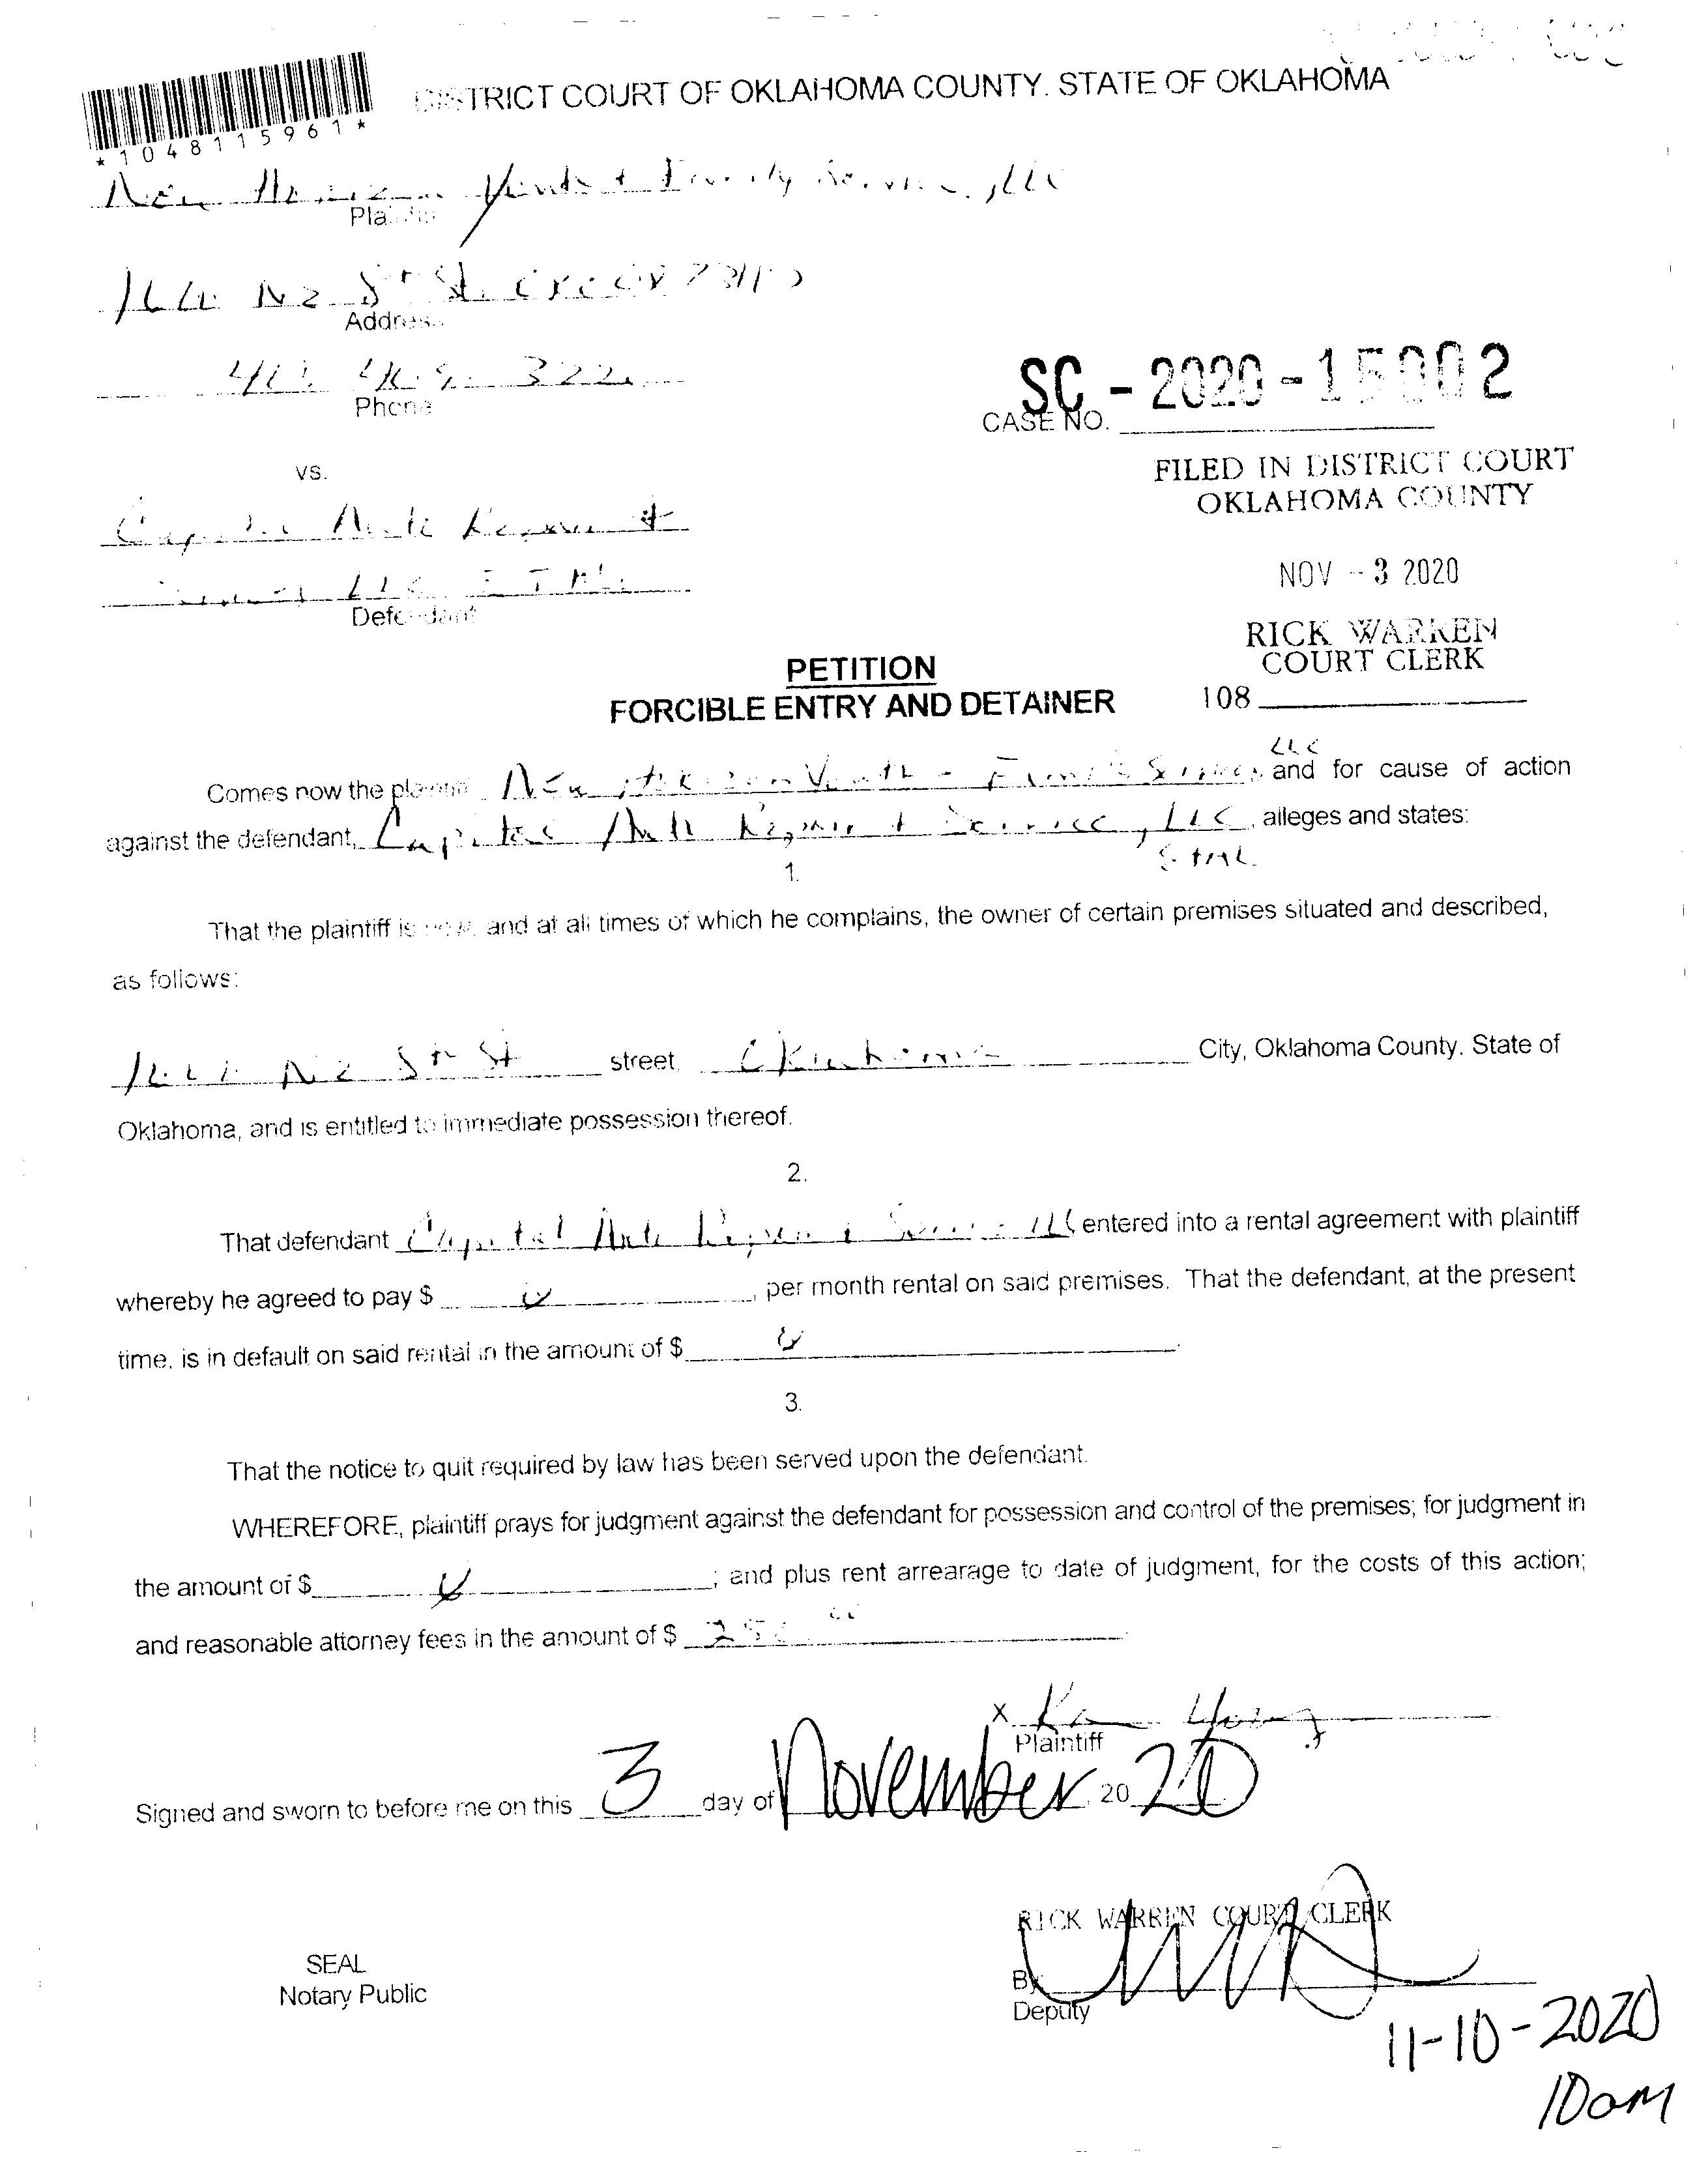 DISTRICT COURT OF OKLAHOMA COUNTY. STATE OF OKLAHOMA
*1048115961*
New Horizon Youth + Family Service, LLC
Plaintiff
NE 5th St.
Address
Phone
SC - 2020 - 15002
CASE NO.
vs.
FILED IN DISTRICT COURT
OKLAHOMA COUNTY
Capitol Auto Repair +
Service LLC
Defendant
NOV - 3 2020
RICK WARREN
COURT CLERK
108
PETITION
FORCIBLE ENTRY AND DETAINER
LLC
Comes now the plaintiff New Horizon Youth + Family Service, and for cause of action
against the defendant, Capitol Auto Repair + Service, LLC, alleges and states:
1.
That the plaintiff is now, and at all times of which he complains, the owner of certain premises situated and described,
as follows:
NE 5th St street, Oklahoma City, Oklahoma County. State of
Oklahoma, and is entitled to immediate possession thereof.
2.
That defendant Capital Auto Repair + Service LLC entered into a rental agreement with plaintiff
whereby he agreed to pay $ , per month rental on said premises. That the defendant, at the present
time, is in default on said rental in the amount of $ .
3.
That the notice to quit required by law has been served upon the defendant.
WHEREFORE, plaintiff prays for judgment against the defendant for possession and control of the premises; for judgment in
the amount of $ ; and plus rent arrearage to date of judgment, for the costs of this action;
and reasonable attorney fees in the amount of $
X
Plaintiff
Signed and sworn to before me on this 3 day of November 2020
RICK WARREN COURT CLERK
SEAL
Notary Public
By
Deputy
11-10-2020
10am